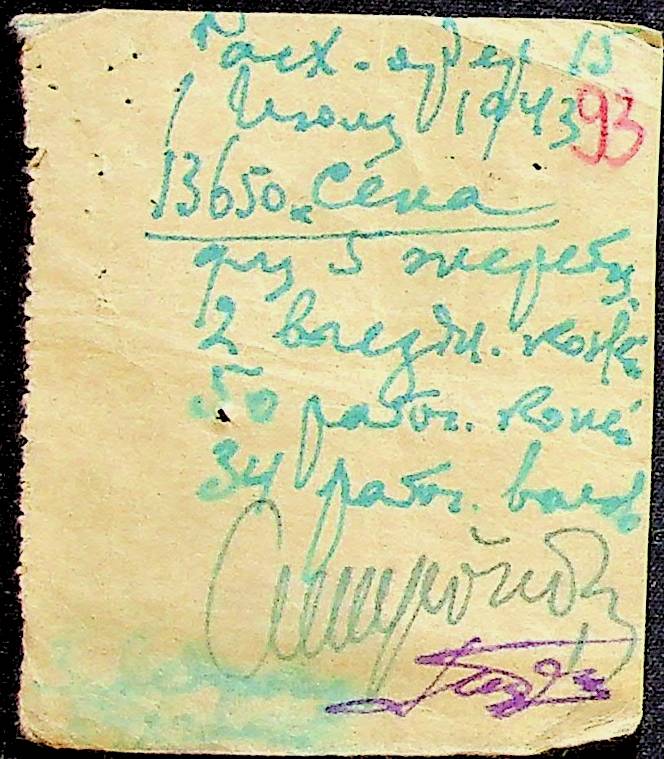 Расх. ордер 15
Июль 1943
93
13650. Сена
для 5 жеребц.
2 выездн. коней
50 рабоч. коней
34 рабоч. волов